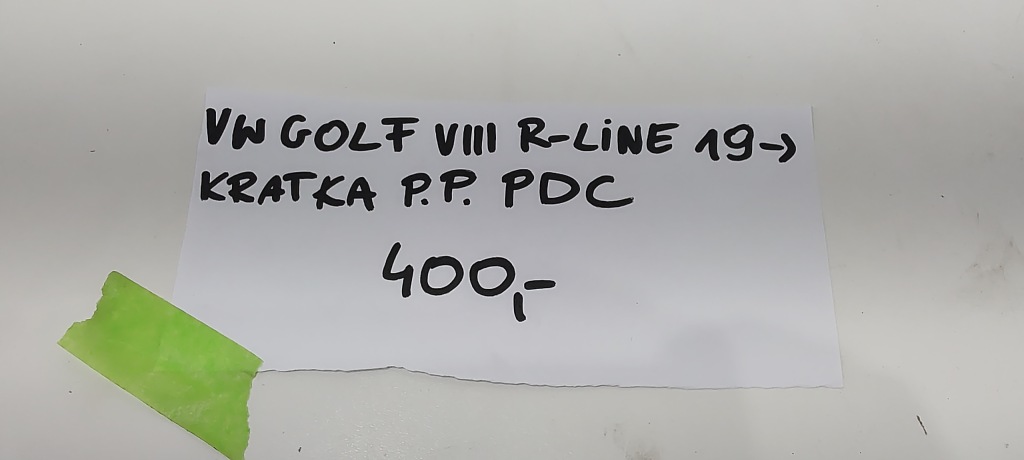 VW GOLF VIII R-LiNE 19->
KRATKA P.P. PDC
400,-